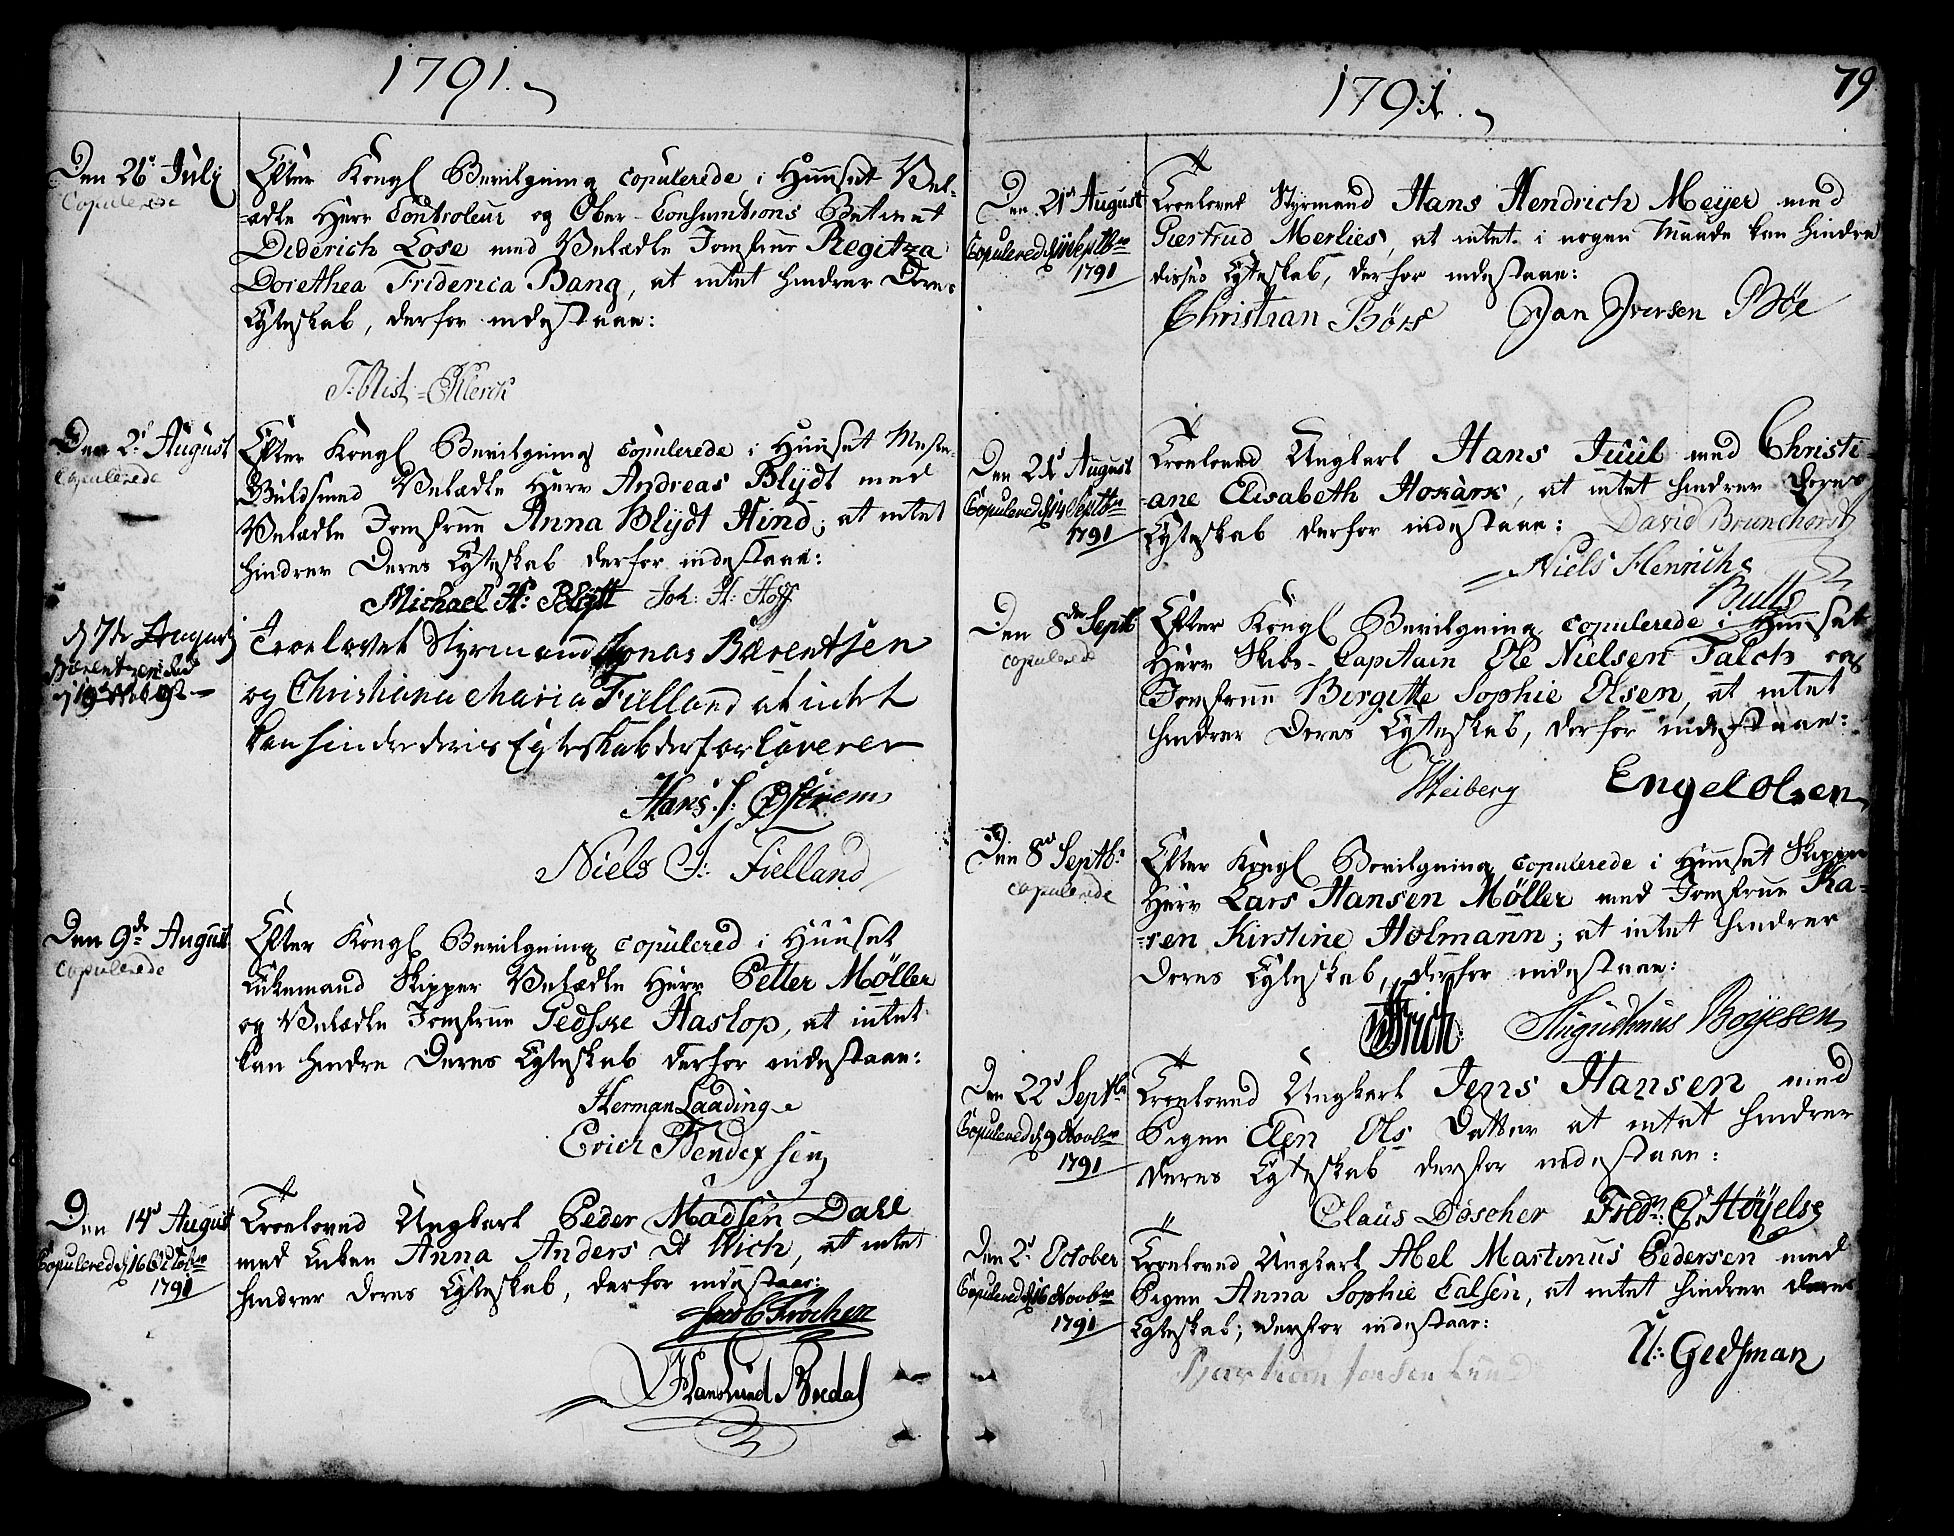 1791.
Den 26de Julj
Copulerede
Efter Kongl Bevilgning copulerede i Huuset Vel-
ædle Herr Controleur og Ober-Consumtions Betient
Diderich Lose med Velædle Jomfrue Regitza
Dorethea Friderica Bang, at intet hindrer Deres
Ægteskab, derfor indestaae:
Den 2d August
Copulerede
Efter Kongl Bevilgning copulerede i Huuset
Velædle Herr Andreas Blÿdt med
Velædle Jomfrue Anna Blÿdt Hind; at intet
hindrer Deres Ægteskab derfor indestaae:
Michael H: Blÿtt Joh: H: Hoff
d 7de August
Troelovet Styrmand Jonas Bærentsen
og Christiana Maria Fielland at intet
kan hindre deris Egteskab derfor Caverer
Hans J: Østrem
Niels J: Fielland
Den 9de August
Copulerede
Efter Kongl Bevilgning copulered i Huuset
Enkemand Skipper Velædle Herr Petter Møller
og Velædle Jomfrue Gedske Haslop, at intet
kan hindre Deres Ægteskab derfor indestaae:
Herman Laading
Erich Bendixsen
Den 14d August
Copulered d 16 Octobr
1791
Troeloved Ungkarl Peder Madsen Dahl
med Enken Anna Anders D Wich, at intet
hindrer deres Ægteskab, derfor indestaae:
Jacob Frochen
Hans Lund Bredal
79
1791.
Den 21d August
Copulered d 11 Septbr
1791
Troelovet Styrmand Hans Hendrich Meÿer med
Giertrud Merlies, at intet i nogen Maade kan hindre
disses Ægteskab, derfor indestaae:
Christian Børs Jan Iversen Bøe
Den 21d August
Copulered d 14 Septbr
1791
Troeloved Ungkarl Hans Juul med Christi-
ane Elisabeth Hokark, at intet hindrer Deres
Ægteskab derfor indestaae: David Brunchorst
Niels Henrich
Bull
Den 8de Septb
copulerede
Efter Kongl Bevilgning copulerede i Huuset
Herr Skibs-Capitain Ole Nielsen Falch og
Jomfrue Birgitte Sophie Olsen, at intet
hindrer Deres Ægteskab, derfor indestaae:
Heiberg Engel Olsen
Den 8d Septbr
copulerede
Efter Kongl Bevilgning copulerede i Huuset Skipper
Herr Lars Hansen Møller med Jomfrue Ka-
-ren Kirstine Holmann; at intet hindrer
Deres Ægteskab, derfor indestaae:
Augustinus Boÿesen
Den 22d Septbr
Copulered d 9 Novbr
1791
Troeloved Ungkarl Jens Hansen med
Pigen Elen Ols Datter at intet hindrer
deres Ægteskab derfor indestaae:
Claus Döscher Fridr: C. Høÿelse
Den 2d October
Copulered d 16 Novbr
1791
Troeloved Ungkarl Abel Martinus Pedersen med
Pigen Anna Sophie Calsen, at intet hindrer deres
Ægteskab; derfor indestaae:
U: Gedsman
Jensen Lund